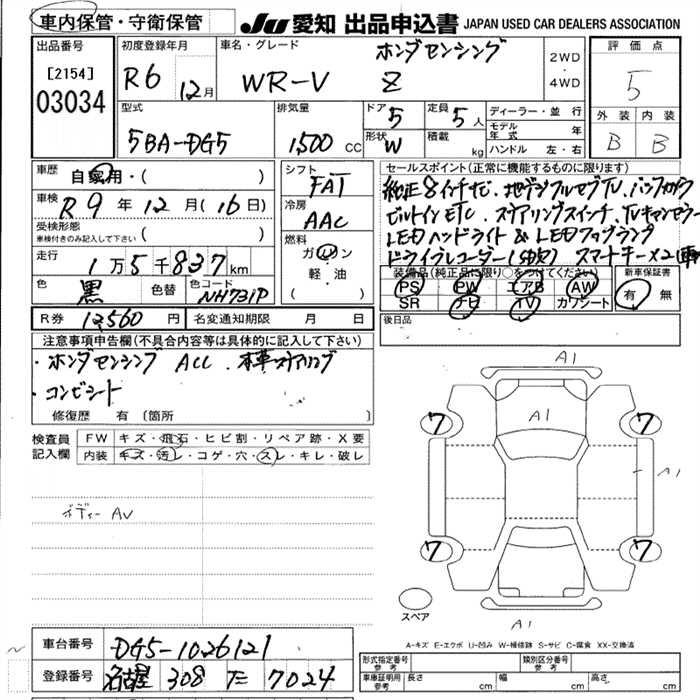 車内保管・守衛保管
JU 愛知 出品申込書 JAPAN USED CAR DEALERS ASSOCIATION
出品番号
[2154]
03034
初度登録年月
R6 12月
車名・グレード
ホンダセンシング
WR-V Z
2WD
・
4WD
評価点
5
型式
5BA-DG5
排気量
1,500 CC
ドア
5
定員
5 人
形状
W
積載
kg
ディーラー・並行
モデル年式 年
ハンドル 左・右
外装 内装
B B
車歴
自家用・( )
車検
R 9 年 12 月 (16日)
受検形態
車検付きのみ記入して下さい ( )
走行
1万5千837 km
色
黒
色替
色コード
NH731P
シフト
FAT
冷房
AAC
燃料
ガソリン
軽・油
( )
セールスポイント(正常に機能するものに限ります)
純正8インチナビ、地デジフルセグTV、バックカメラ
ビルトインETC、ステアリングスイッチ、TVキャンセラー
LEDヘッドライト&LEDフォグランプ
ドライブレコーダー スマートキー×2
装備品(純正品に限り○をつけてください)
PS PW エアB AW
SR ナビ TV カワシート
新車保証書
有・無
R券 12,560 円
名変通知期限 月 日
後日品
注意事項申告欄(不具合内容等は具体的に記入して下さい)
・ホンダセンシング ACC、本革ステアリング
・コンビシート
修復歴 有〔箇所 〕
検査員
記入欄
FW キズ・飛石・ヒビ割・リペア跡・X要
内装 キズ・汚レ・コゲ・穴・スレ・キレ・破レ
ボディー AV
A1
A1
7 7
A1
7 7
スペア
A1
A-キズ E-エクボ U-凹み W-補修跡 S-サビ C-腐食 XX-交換済
車台番号 DG5-1026121
登録番号 名古屋 308 7024
形式指定番号
参考
類別区分番号
参考
車庫証明用
参考
長さ cm 幅 cm 高さ cm